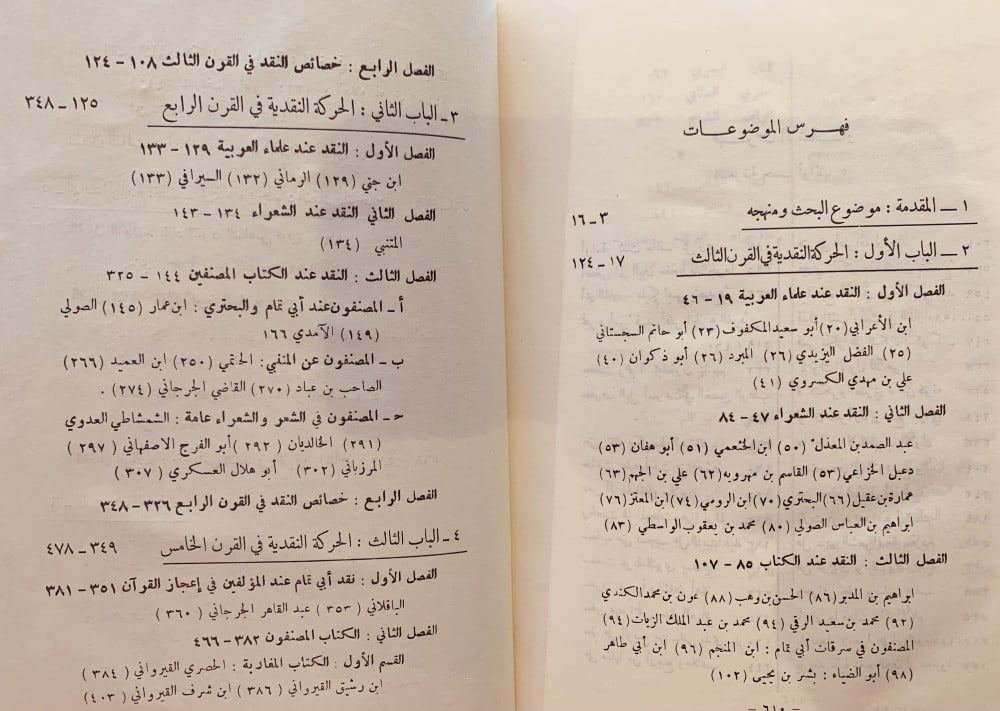 فهرس الموضوعات
١ ـ المقدمة : موضوع البحث ومنهجه ٣ - ١٦
٢ ـ الباب الأول : الحركة النقدية في القرن الثالث ١٧ - ١٢٤
الفصل الأول : النقد عند علماء العربية ١٩ - ٤٦
ابن الأعرابي (٢٠) أبو سعيد المكفوف (٢٣) أبو حاتم السجستاني
(٢٥) الفضل اليزيدي (٢٦) المبرد (٢٦) أبو ذكوان (٤٠)
علي بن مهدي الكسروي (٤١)
الفصل الثاني : النقد عند الشعراء ٤٧ - ٨٤
عبد الصمد بن المعذل (٥٠) ابن الخثعمي (٥١) أبو هفان (٥٣)
دعبل الخزاعي (٥٣) القاسم بن مهرويه (٦٢) علي بن الجهم (٦٣)
عمارة بن عقيل (٦٦) البحتري (٧٠) ابن الرومي (٧٤) ابن المعتز (٧٦)
ابراهيم بن العباس الصولي (٨٠) محمد بن يعقوب الواسطي (٨٣)
الفصل الثالث : النقد عند الكتاب ٨٥ - ١٠٧
ابراهيم بن المدبر (٨٦) الحسن بن وهب (٨٨) عون بن محمد الكندي
(٩٢) محمد بن سعيد الرقي (٩٤) محمد بن عبد الملك الزيات (٩٤)
المصنفون في سرقات أبي تمام : ابن المنجم (٩٦) ابن أبي طاهر
(٩٨) أبو الضياء : بشر بن يحيى (١٠٢)
- ٦١٠ -
الفصل الرابع : خصائص النقد في القرن الثالث ١٠٨ - ١٢٤
٣ ـ الباب الثاني : الحركة النقدية في القرن الرابع ١٢٥ - ٣٤٨
الفصل الأول : النقد عند علماء العربية ١٢٩ - ١٣٣
ابن جني (١٢٩) الرماني (١٣٢) السيرافي (١٣٣)
الفصل الثاني النقد عند الشعراء ١٣٤ - ١٤٣
المتنبي (١٣٤)
الفصل الثالث : النقد عند الكتاب المصنفين ١٤٤ - ٣٢٥
أ ـ المصنفون عند أبي تمام والبحتري : ابن عمار (١٤٥) الصولي
(١٤٩) الآمدي ١٦٦
ب ـ المصنفون عن المتنبي : الحاتمي (٢٥٠) ابن العميد (٢٦٦)
الصاحب بن عباد (٢٧٠) القاضي الجرجاني (٢٧٤) .
حـ ـ المصنفون في الشعر والشعراء عامة : الشمشاطي العدوي
(٢٩١) الخالديان (٢٩٢) أبو الفرج الاصفهاني (٢٩٧)
المرزباني (٣٠٢) أبو هلال العسكري (٣٠٧)
الفصل الرابع : خصائص النقد في القرن الرابع ٣٢٦ - ٣٤٨
٤ ـ الباب الثالث : الحركة النقدية في القرن الخامس ٣٤٩ - ٤٧٨
الفصل الأول : نقد أبي تمام عند المؤلفين في إعجاز القرآن ٣٥١ - ٣٨١
الباقلاني (٣٥٣) عبد القاهر الجرجاني (٣٦٠)
الفصل الثاني : الكتاب المصنفون ٣٨٢ - ٤٦٦
القسم الأول : الكتاب المغاربة : الحصري القيرواني (٣٨٤)
ابن رشيق القيرواني (٣٨٦) ابن شرف القيرواني (٤٠٣)